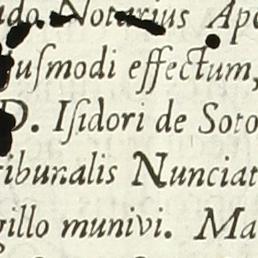 Notarius Apo
usmodi effectum,
D. Isidori de Soto
ribunalis Nunciat
gillo munivi. Ma